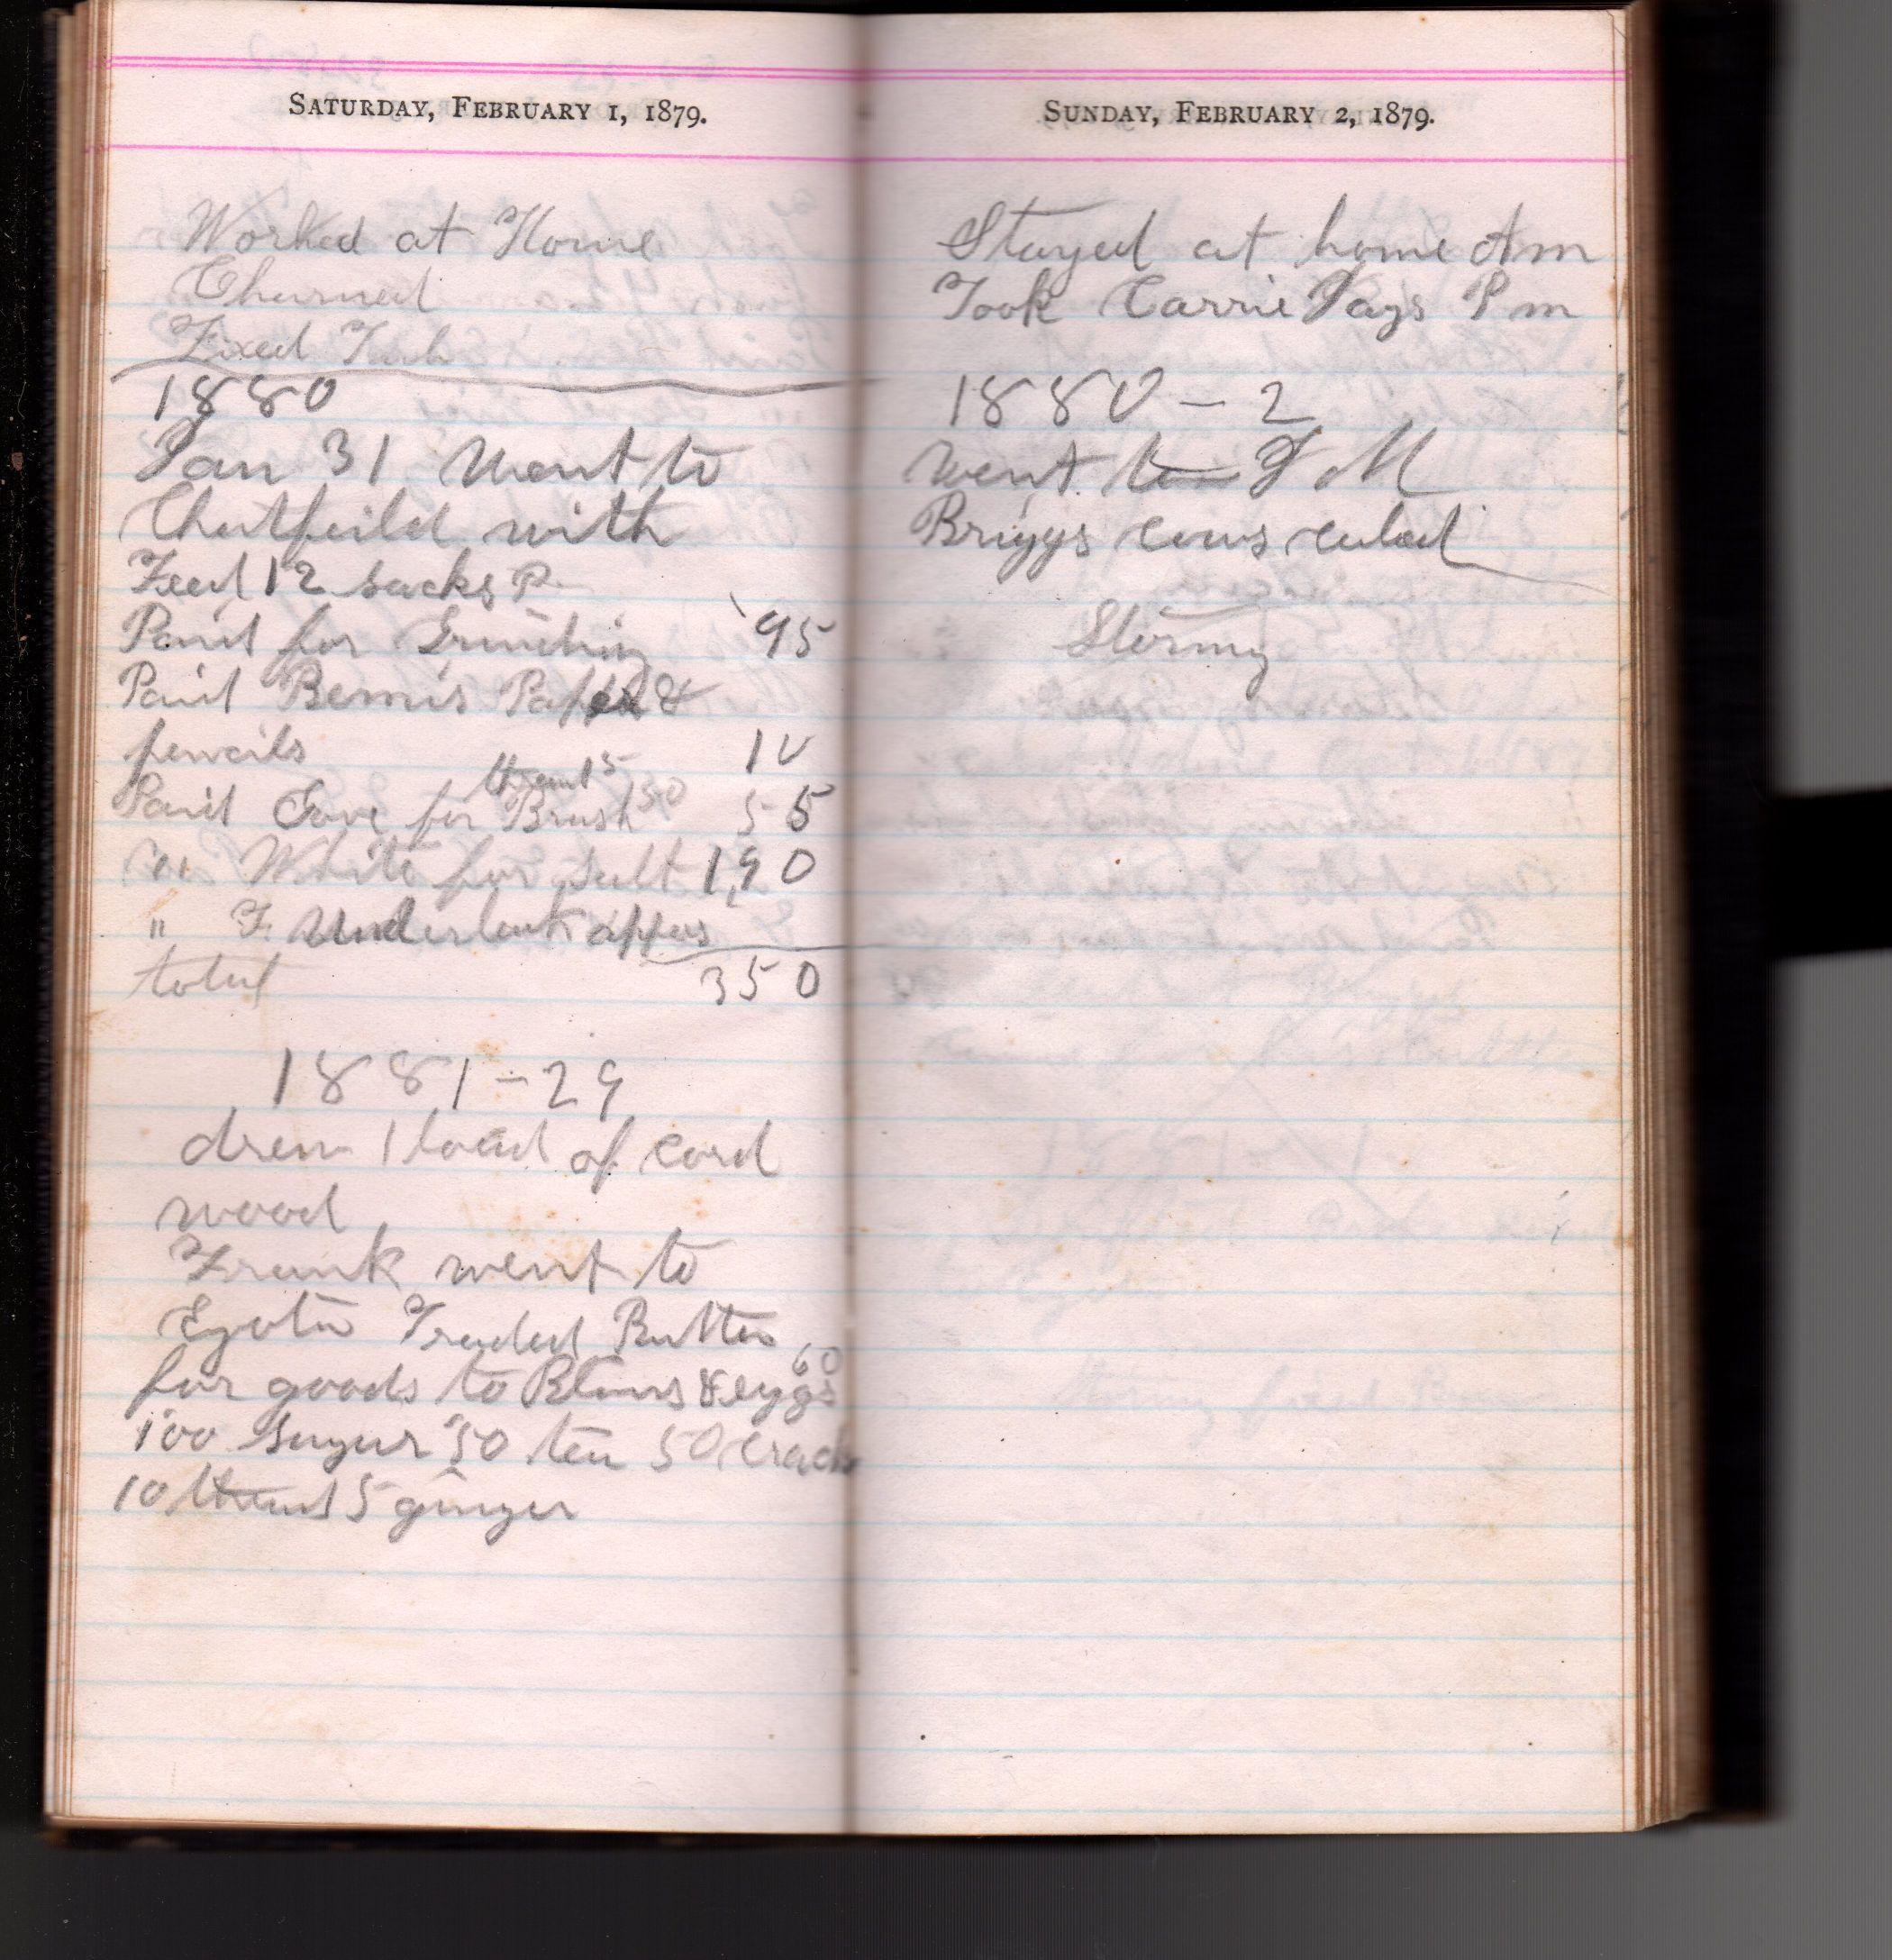 SATURDAY, FEBRUARY 1, 1879.
Worked at Home
Churned
Fixed
1880
Jan 31 Went to
Chatfeild with
Feed 12 sacks P
Paid for Grinding 95
Paid Bemis Paper &
pencils 10
thread 5
Paid Gove for Brush 50 55
" White for Salt 1,90
" F. Underleak appes
total 350
1881-29
drew 1 load of cord
wood
Frank went to
Eyota Traded Butter
60
for goods to Blairs & eggs
100 Sugar 50 tea 50 crack
10 thread 5 ginger
SUNDAY, FEBRUARY 2, 1879.
Stayed at home Am
Took Carrie Jays Pm
1880-2
went to F M
Briggs cows
Stormy